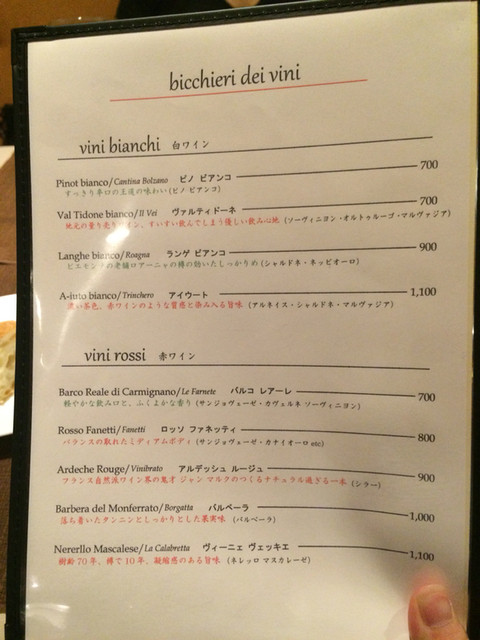 bicchieri dei vini
vini bianchi 白ワイン
Pinot bianco/Cantina Bolzano ピノ ビアンコ 700
すっきり辛口の王道の味わい(ピノ ビアンコ)
Val Tidone bianco/Il Vei ヴァルティドーネ 700
地元の量り売りワイン、すいすい飲んでしまう優しい飲み心地 (ソーヴィニヨン・オルトゥルーゴ・マルヴァジア)
Langhe bianco/Roagna ランゲ ビアンコ 900
ピエモンテの老舗ロアーニャの樽の効いたしっかりめ (シャルドネ・ネッビオーロ)
A-iuto bianco/Trinchero アイウート 1,100
濃い茶色、赤ワインのような質感と染み入る旨味 (アルネイス・シャルドネ・マルヴァジア)
vini rossi 赤ワイン
Barco Reale di Carmignano/Le Farnete バルコ レアーレ 700
軽やかな飲み口と、ふくよかな香り (サンジョヴェーゼ・カヴェルネ ソーヴィニヨン)
Rosso Fanetti/Fanetti ロッソ ファネッティ 800
バランスの取れたミディアムボディ (サンジョヴェーゼ・カナイオーロ etc)
Ardeche Rouge/Vinibrato アルデッシュ ルージュ 900
フランス自然派ワイン界の鬼才 ジャン マルクのつくるナチュラル過ぎる一本 (シラー)
Barbera del Monferrato/Borgatta バルベーラ 1,000
落ち着いたタンニンとしっかりとした果実味 (バルベーラ)
Nererllo Mascalese/La Calabretta ヴィーニェ ヴェッキエ 1,100
樹齢70年、樽で10年、凝縮感のある旨味 (ネレッロ マスカレーゼ)